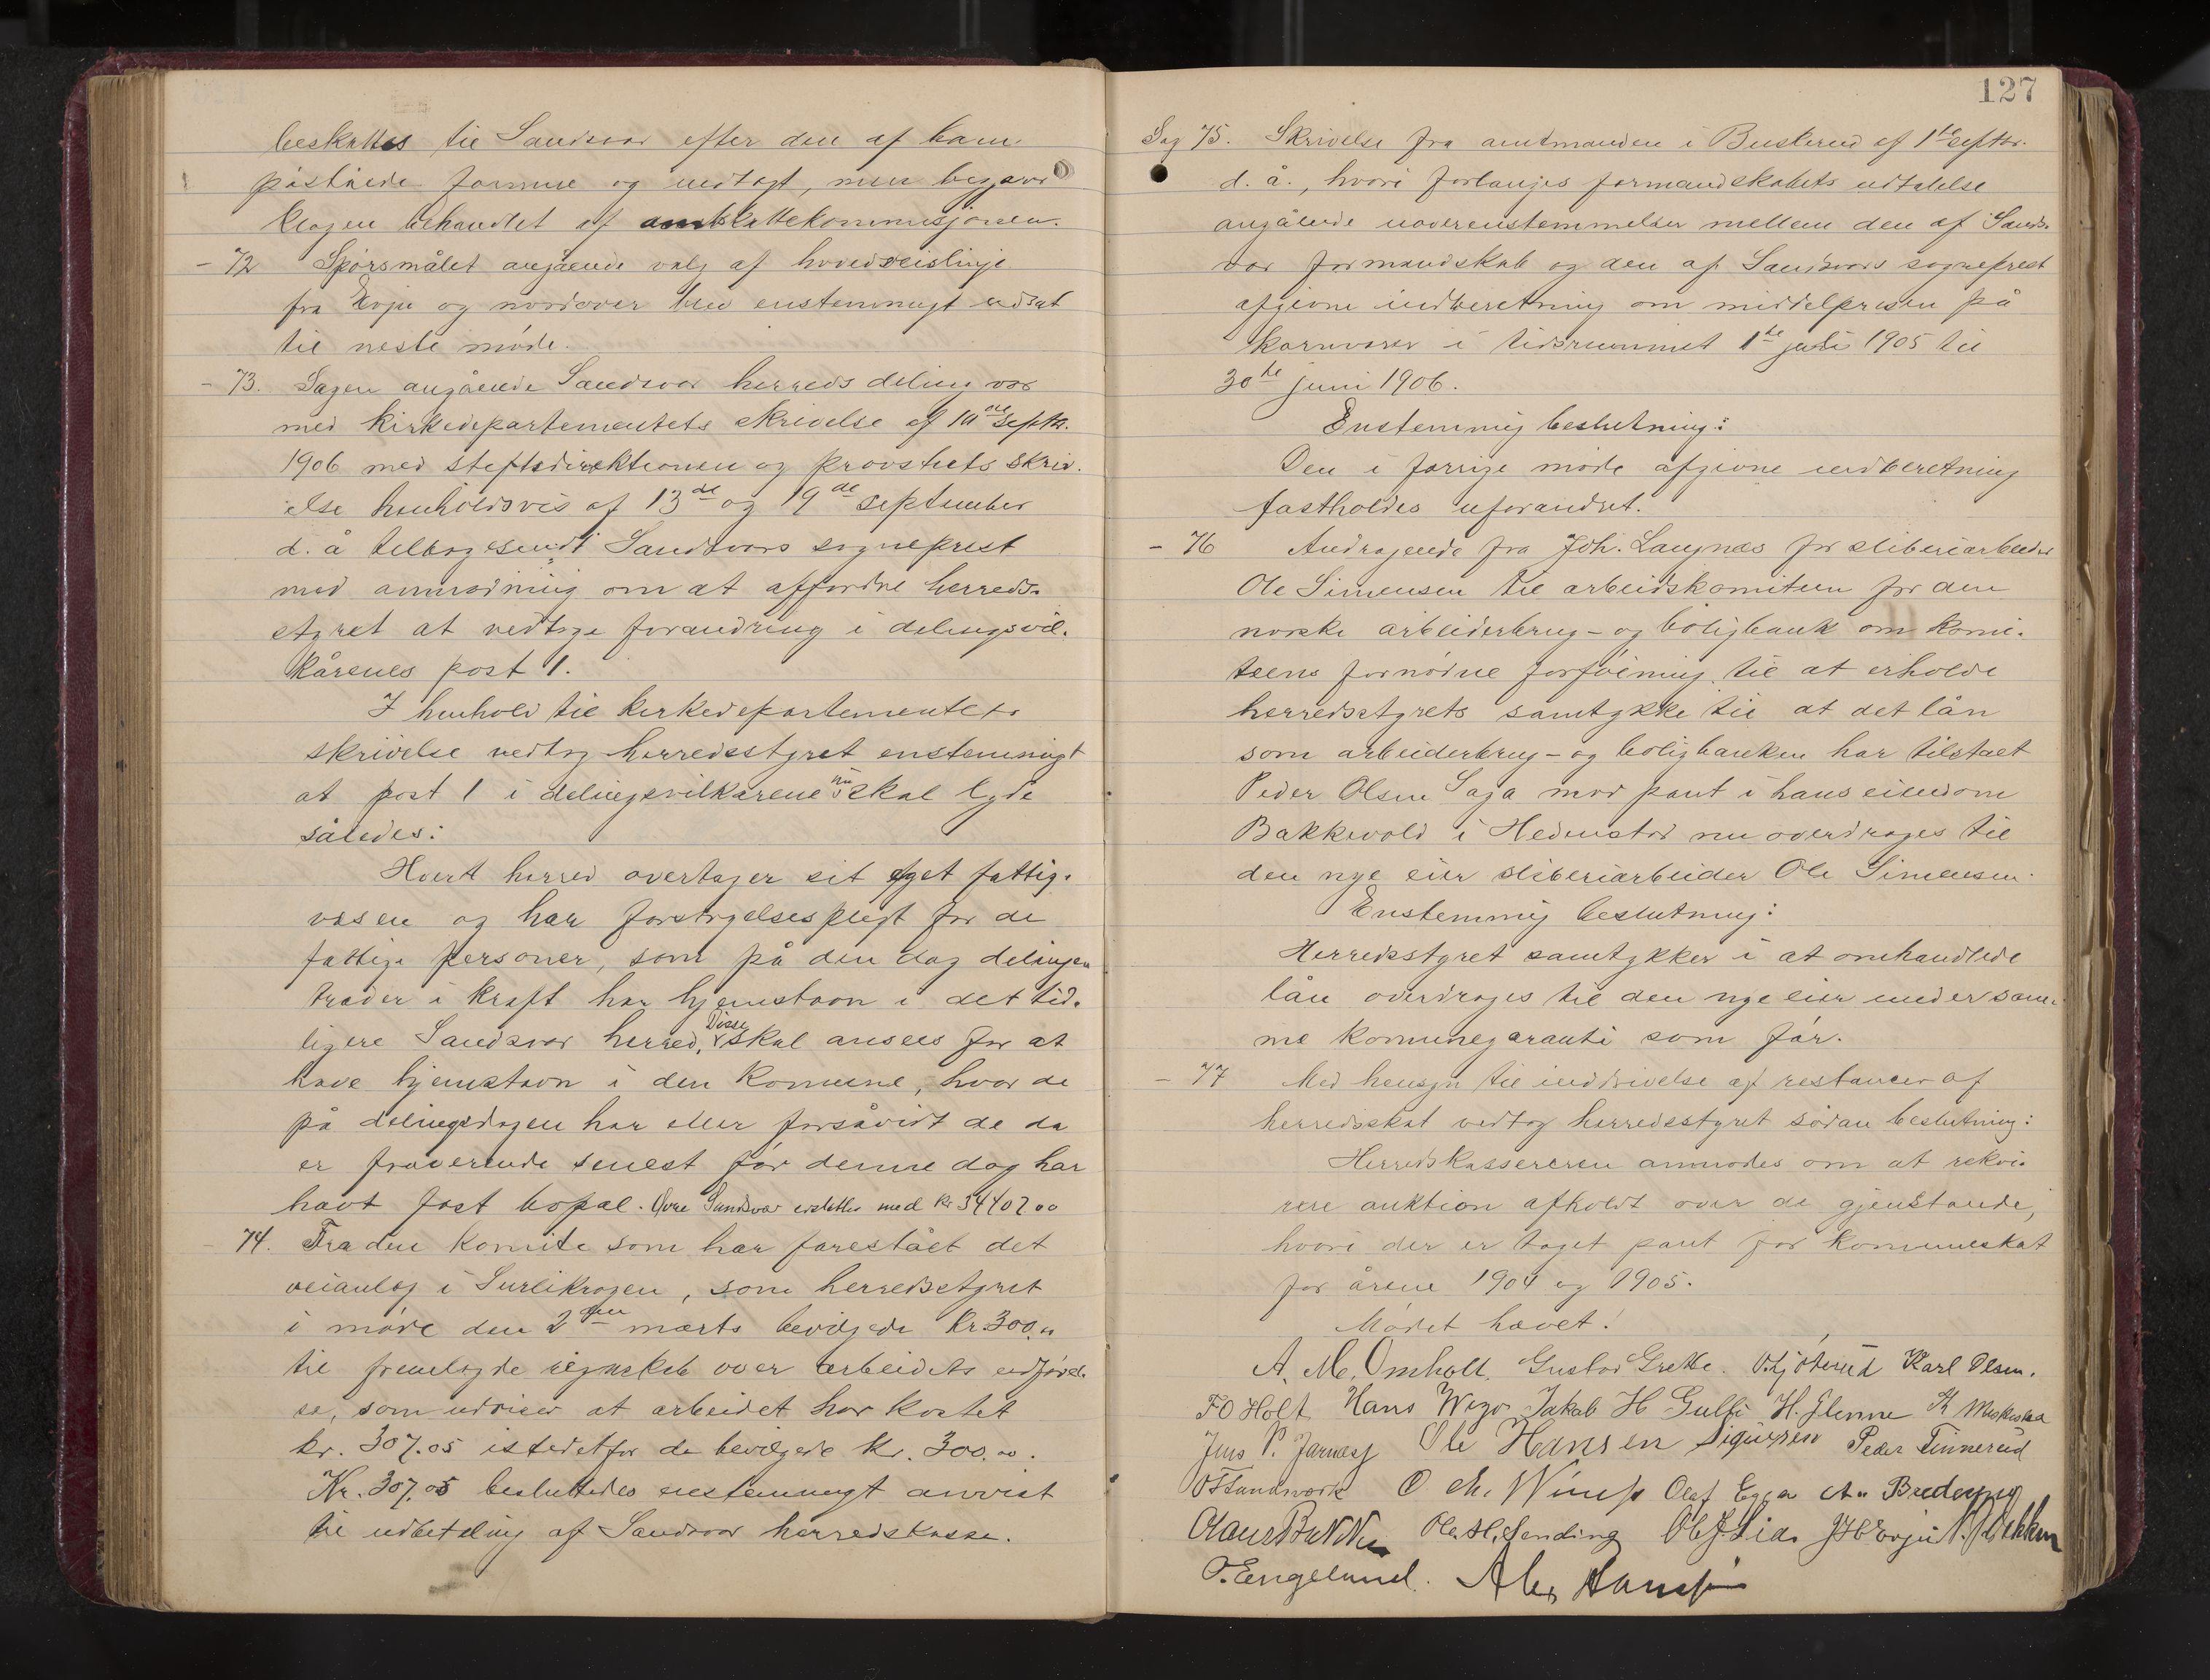 beskattes til Sandsvær efter den af ham
påståede formue og indtægt, men begjær
klagen behandlet af amtskattekommissjonen.
- 72 Spørsmålet angående valg af hovedveislinje
fra Evju og nordover blev enstemmigt udsat
til neste møde.
- 73. Sagen angående Sandsvær herreds deling var
med kirkedepartementets skrivelse af 10de septbr.
1906 med stiftsdirektionen og provstiets skriv-
else henholdsvis af 13de og 19de september
d. å tilbagesendt Sandsværs sogneprest
med anmodning om at affordre herreds-
styret at vedtage forandring i delingsvil-
kårenes post 1.
I henhold til kirkedepartementets
skrivelse vedtog herredsstyret enstemmigt
at post 1 i delingsvilkårene nu skal lyde
således:
Hvert herred overtager sit eget fattig-
væsen og har forsørgelsespligt for de
fattige personer, som på den dag delingen
træder i kraft har hjemstavn i det tid-
ligere Sandsvær herred, Disse skal ansees for at
have hjemstavn i den komune, hvor de
på delingsdagen har eller forsåvidt de da
er fraværende senest før denne dag har
havt fast bopæl. Øvre Sandsvær erstattes med kr 34402 00
- 74. Fra den komite som har forestået det
veianlæg i Surlikrogen, som herredsstyret
i møde den 2den marts bevilgede kr. 300.00
til fremlagde regnskab over arbeidets udførel-
se, som udviser at arbeidet har kostet
kr. 307.05 istedetfor de bevilgede kr. 300.00.
Kr. 307.05 besluttedes enstemmigt anvist
til udbetaling af Sandsvær herredskasse.
127
Sag 75. Skrivelse fra amtmanden i Buskerud af 1ste septbr.
d. å., hvori forlanges formandskabets udtalelse
angående uoverenstemmelser mellem den af Sands-
vær formandskab og den af Sandsværs sogneprest
afgivne indberetning om middelprisen på
kornvarer i tidsrummet 1ste juli 1905 til
30te juni 1906.
Enstemmig beslutning:
Den i forrige møde afgivne indberetning
fastholdes uforandret.
- 76 Andragende fra Joh. Langnæs for sliberiarbeider
Ole Simensen til arbeidskomiteen for den
norske arbeiderbrug- og boligbank om komi-
teens fornødne forføining til at erholde
herredsstyrets samtykke til at det lån
som arbeiderbrug- og boligbanken har tilstået
Peder Olsen Saga mod pant i hans eiendom
Bakkevold i Hedenstad nu overdrages til
den nye eier sliberiarbeider Ole Simensen.
Enstemmig beslutning:
Herredsstyret samtykker i at omhandlede
lån overdrages til den nye eier under sam-
me komunegaranti som før.
- 77 Med hensyn til inddrivelse af restancer af
herredsskat vedtog herredsstyret sådan beslutning:
Herredskassereren anmodes om at rekvi-
rere auktion afholdt over de gjenstande,
hvori der er taget pant for komuneskat
for årene 1904 og 1905.
Mødet hævet!
A. M. Omholt. Gustav Grette. Karl Olsen.
FO Holt Hans Jakob H Gulli H. Glenne K
Jens P. Jarnæs Ole Hansen Peder Tinnerud
O Olaf Egga
Ole H. Sending Ole J. Lia. JHEvju
T. Engelund. Alex Hansen